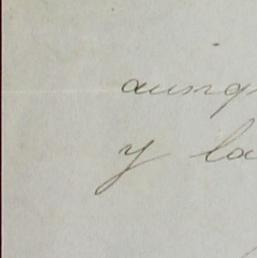 aunq
y la